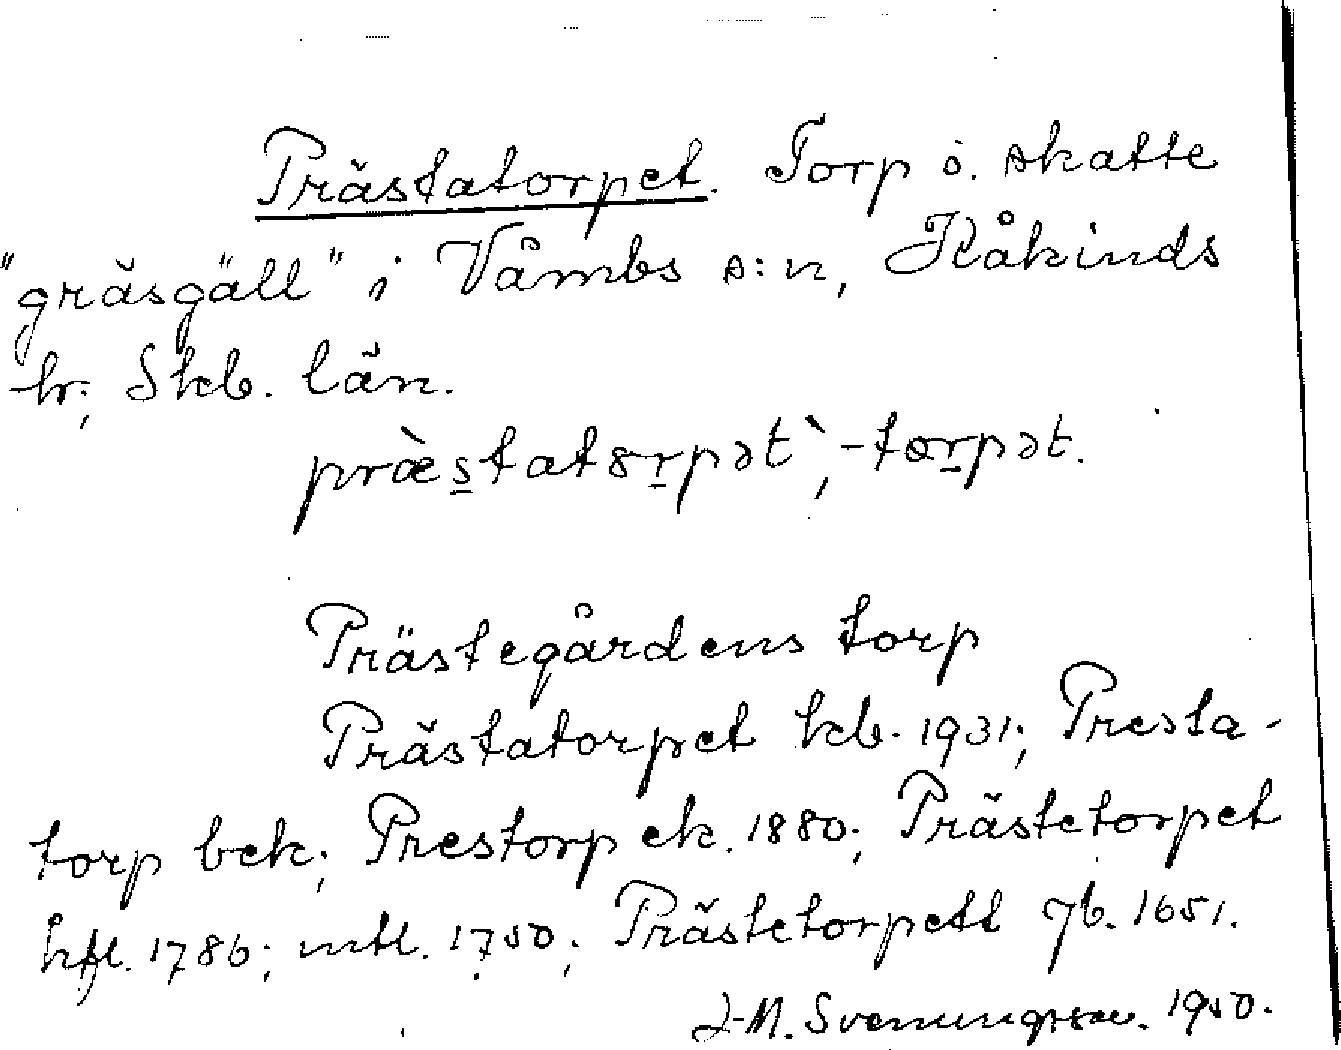 Prästatorpet. Torp o. skatte
"gräsgäll" i Våmbs s:n, Kåkinds
hr; Skb. län.
præ̀s̲tatȣr̲pət`, -tɵr̲pət.
Prästegårdens torp
Prästatorpet kb. 1931; Presta-
torp bek; Prestorp ek. 1880; Prästetorpet
hfl. 1786; mtl. 1750; Prästetorpett jb. 1651.
J-M. Svenungsson. 1950.